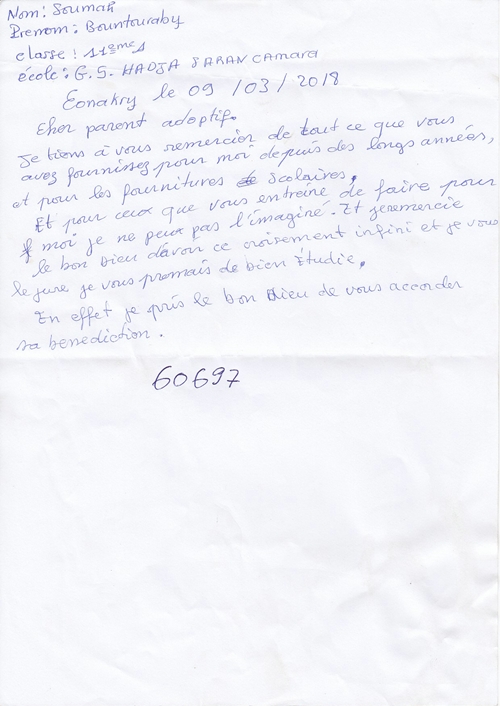 Nom: Soumah
Prenom: Bountouraby
classe: 11ème1
école: G.S. HADJA SARAN CAMARA
Conakry le 09/03/2018
Cher parent adoptif.
Je tiens à vous remercier de tout ce que vous
avez fournissez pour moi depuis des longs années,
et pour les fournitures scolaires.
Et pour ceux que vous entreine de faire pour
moi je ne peux pas l'imaginé. Et jeremercie
le bon Dieu d'avoir ce croisement infini et je vous
le jure je vous promais de bien étudie.
En effet je pris le bon Dieu de vous accorder
sa benediction.
60697